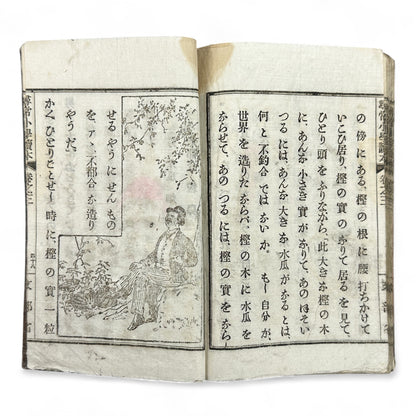 の傍にある、樫の根に腰打ちかけて
いこひ居り、樫の實のなりて居るを見て、
ひとり頭をふりながら、「此大きな樫の木
に、あんな小さき實がなりて、あのほそい
つるには、あんな大きな水瓜がなるとは、
何と不釣合ではないか。もし自分が、
世界を造りたならバ、樫の木に水瓜を
ならせて、あのつるには、樫の實をなら
せるやうにせんもの
を、アヽ、不都合な造り
やうだ。
かく、ひとりごとせし時に、樫の實一粒
尋常小學讀本
卷之三
文部省